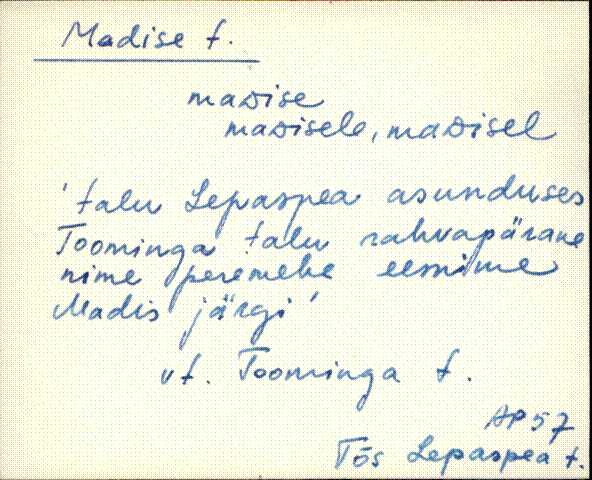 Madise t.
maDise
maDisele, maDisel
'talu Lepaspea asunduses
Toominga talu rahvapärane
nime peremehe eesnime
Madis järgi'
vt. Toominga t.
AP 57
Tõs Lepaspea t.